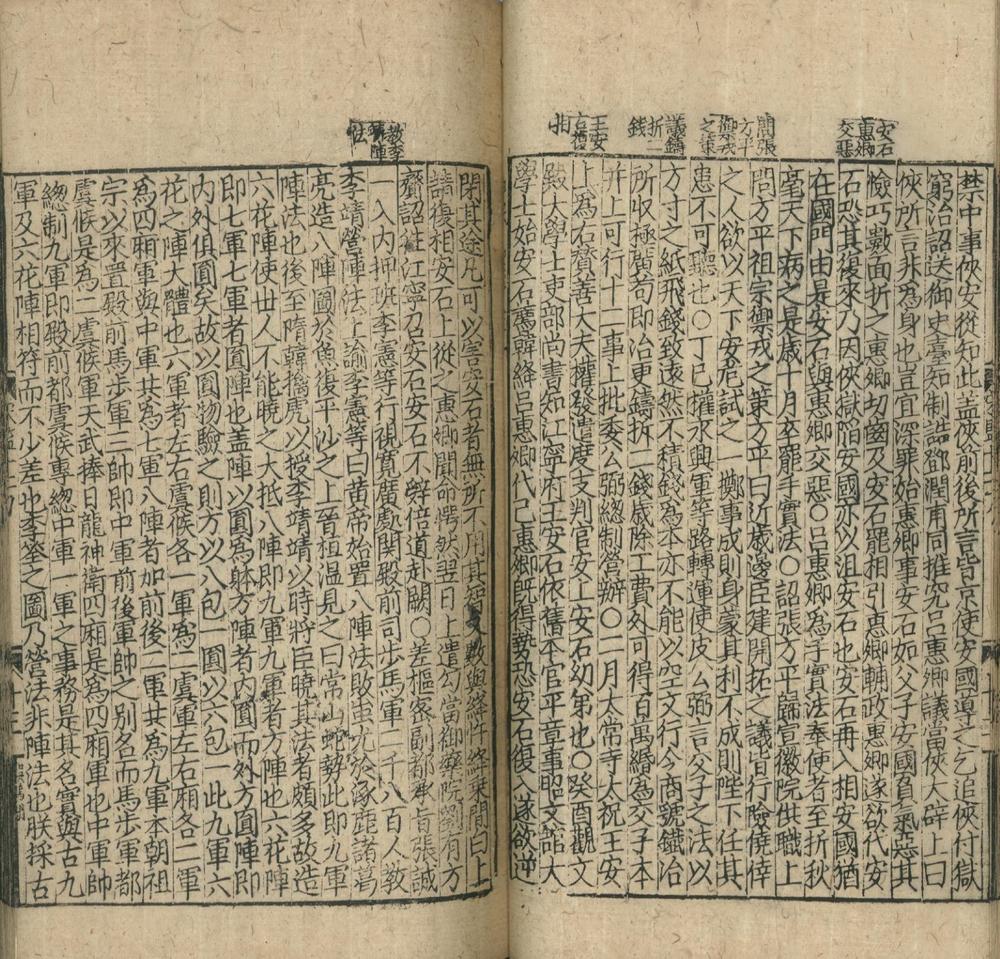 禁中事俠安從知此盖俠前後所言皆京使安國導之乞追俠付獄
窮治詔送御史臺知制誥鄧潤甫同推究呂惠卿議當俠大辟上曰
俠所言非為身也豈宜深罪始惠卿事安石如父子安國負氣惡其
憸巧數面折之惠卿切齒及安石罷相引惠卿輔政惠卿遂欲代安
石恐其復來乃因俠獄陷安國亦以沮安石也安石再入相安國猶
在國門由是安石與惠卿交惡○呂惠卿為手實法奉使者至折秋
毫天下病之是歲十月卒罷手實法○詔張方平歸宣徽院供職上
問方平祖宗禦戎之策方平曰近歲邊臣建開拓之議皆行險僥倖
之人欲以天下安危試之一擲事成則身蒙其利不成則陛下任其
患不可聽也○丁巳權永興軍等路轉運使皮公弼言父子之法以
方寸之紙飛錢致遠然不積錢為本亦不能以空文行今商虢鐵冶
所收極廣苟即冶更鑄折二錢歲除工費外可得百萬緡為交子本
并上可行十二事上批委公弼總制營辦○二月太常寺太祝王安
上為右贊善大夫權發遣度支判官安上安石幼弟也○癸酉觀文
殿大學士吏部尚書知江寧府王安石依舊本官平章事昭文館大
學士始安石薦韓絳呂惠卿代己惠卿既得勢恐安石復入遂欲逆
閉其途凡可以害安石者無所不用其智又數與絳忤絳乘間白上
請復相安石上從之惠卿聞命愕然翌日上遣勾當御藥院劉有方
齎詔往江寧召安石安石不辭倍道赴闕○差樞密副都承旨張誠
一入内押班李憲等行視寬廣處關殿前司步馬軍二千八百人教
李靖營陣法上諭李憲等曰黄帝始置八陣法敗蚩尤於涿鹿諸葛
亮造八陣圖於魚復平沙之上晉桓温見之曰常山蛇勢此即九軍
陣法也後至隋韓擒虎以授李靖靖以時將臣曉其法者頗多故造
六花陣使世人不能曉之大抵八陣即九軍九軍者方陣也六花陣
即七軍七軍者圓陣也盖陣以圓為躰方陣者内圓而外方圓陣即
内外俱圓矣故以圓物驗之則方以八包一圓以六包一此九軍六
花之陣大體也六軍者左右虞候各一軍為二虞軍左右廂各二軍
為四廂軍與中軍共為七軍八陣者加前後二軍共為九軍本朝祖
宗以來置殿前馬步軍三帥即中軍前後軍帥之别名而馬步軍都
虞候是為二虞候軍天武捧日龍神衛四廂是為四廂軍也中軍帥
緫制九軍即殿前都虞候專緫中軍一軍之事務是其名實與古九
軍及六花陣相符而不少差也李筌之圖乃營法非陣法也朕採古
安石
惠卿
交惡
問張
方平
禦戎
之策
議鑄
折二
錢
王安
石復
相
教李
靖陣
法